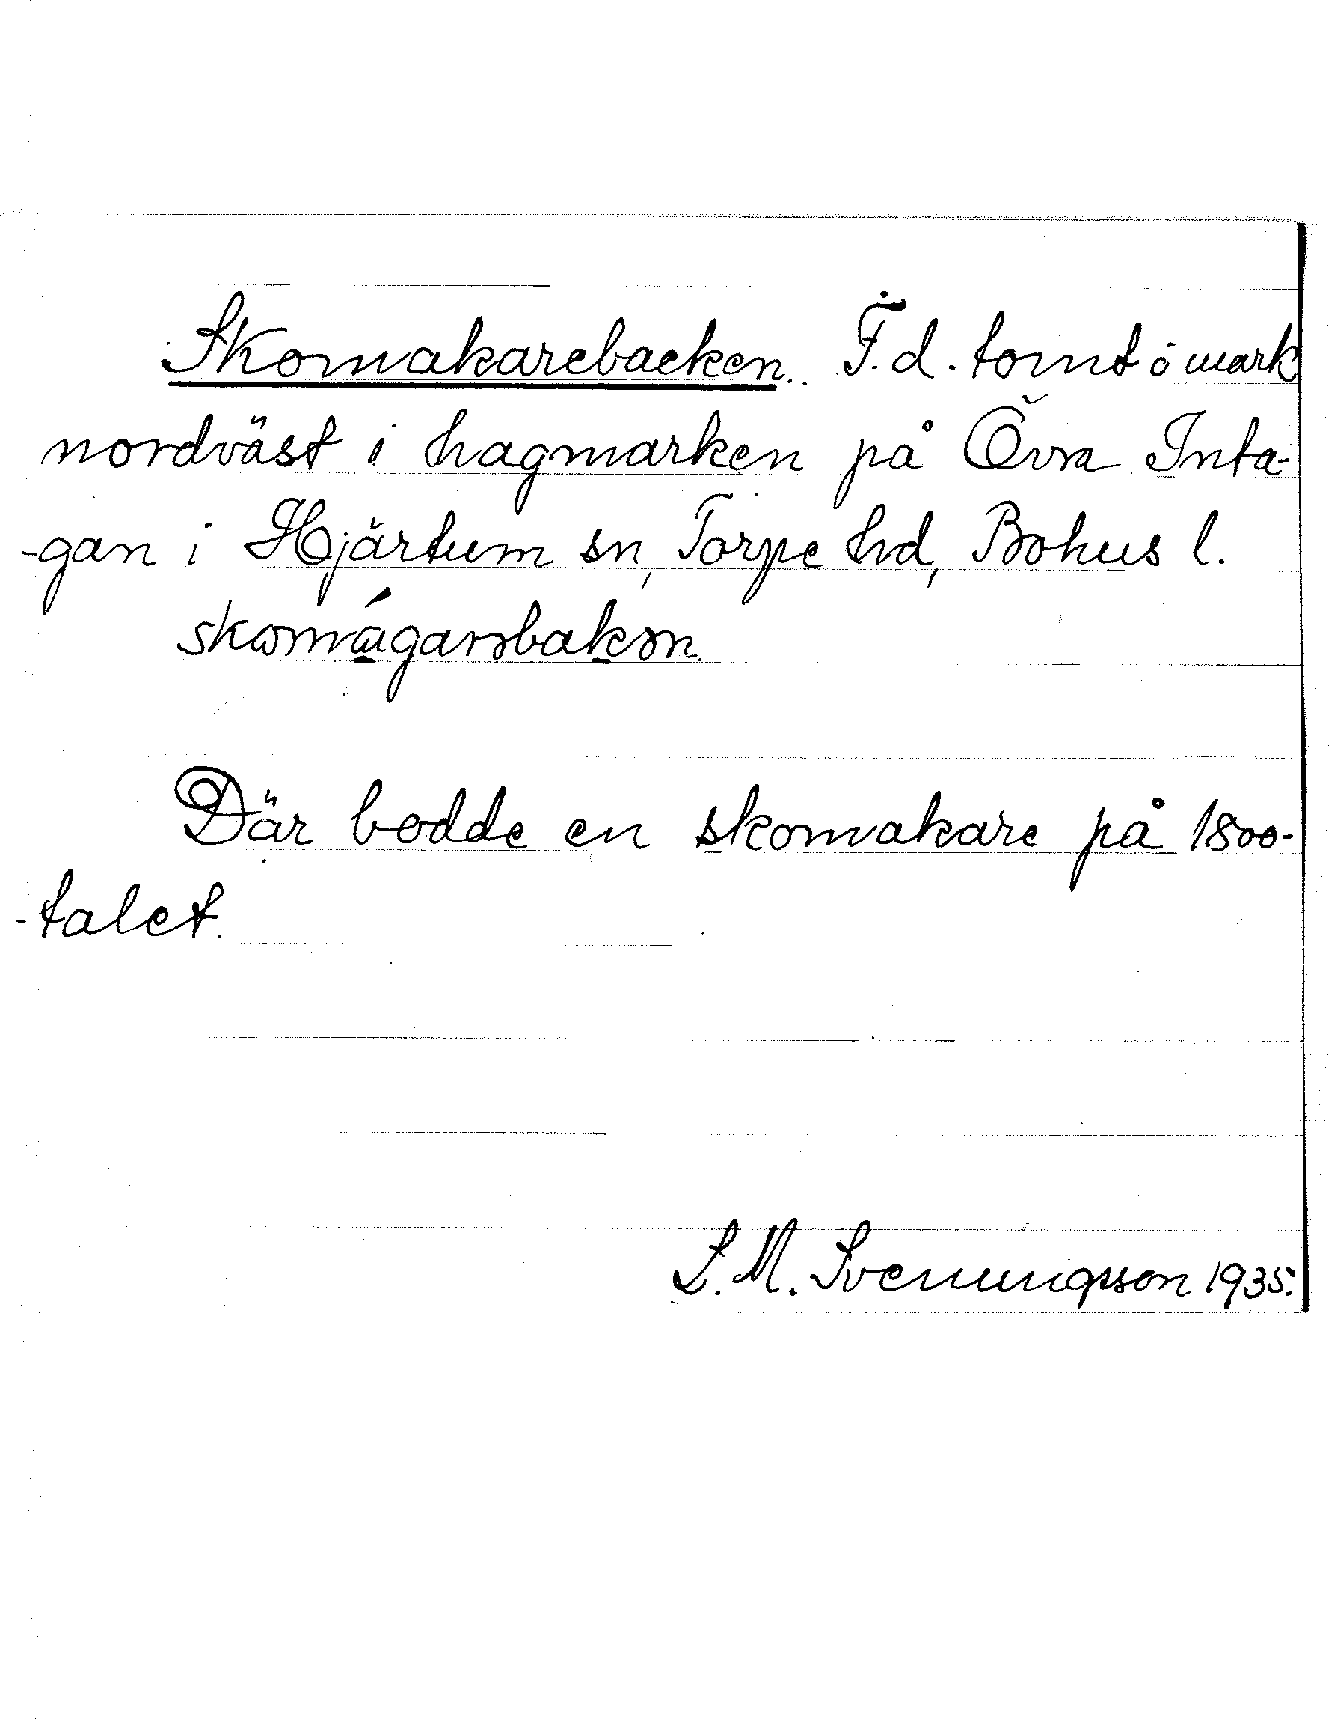 Skomakarebacken. F.d. tomt o mark
nordväst i hagmarken på Övra Inta-
-gan i Hjärtum sn, Torpe hd, Bohus l.
skomágarobakən.
Där bodde en skomakare på 1800-
-talet.
S. M. Svenungsson 1935.